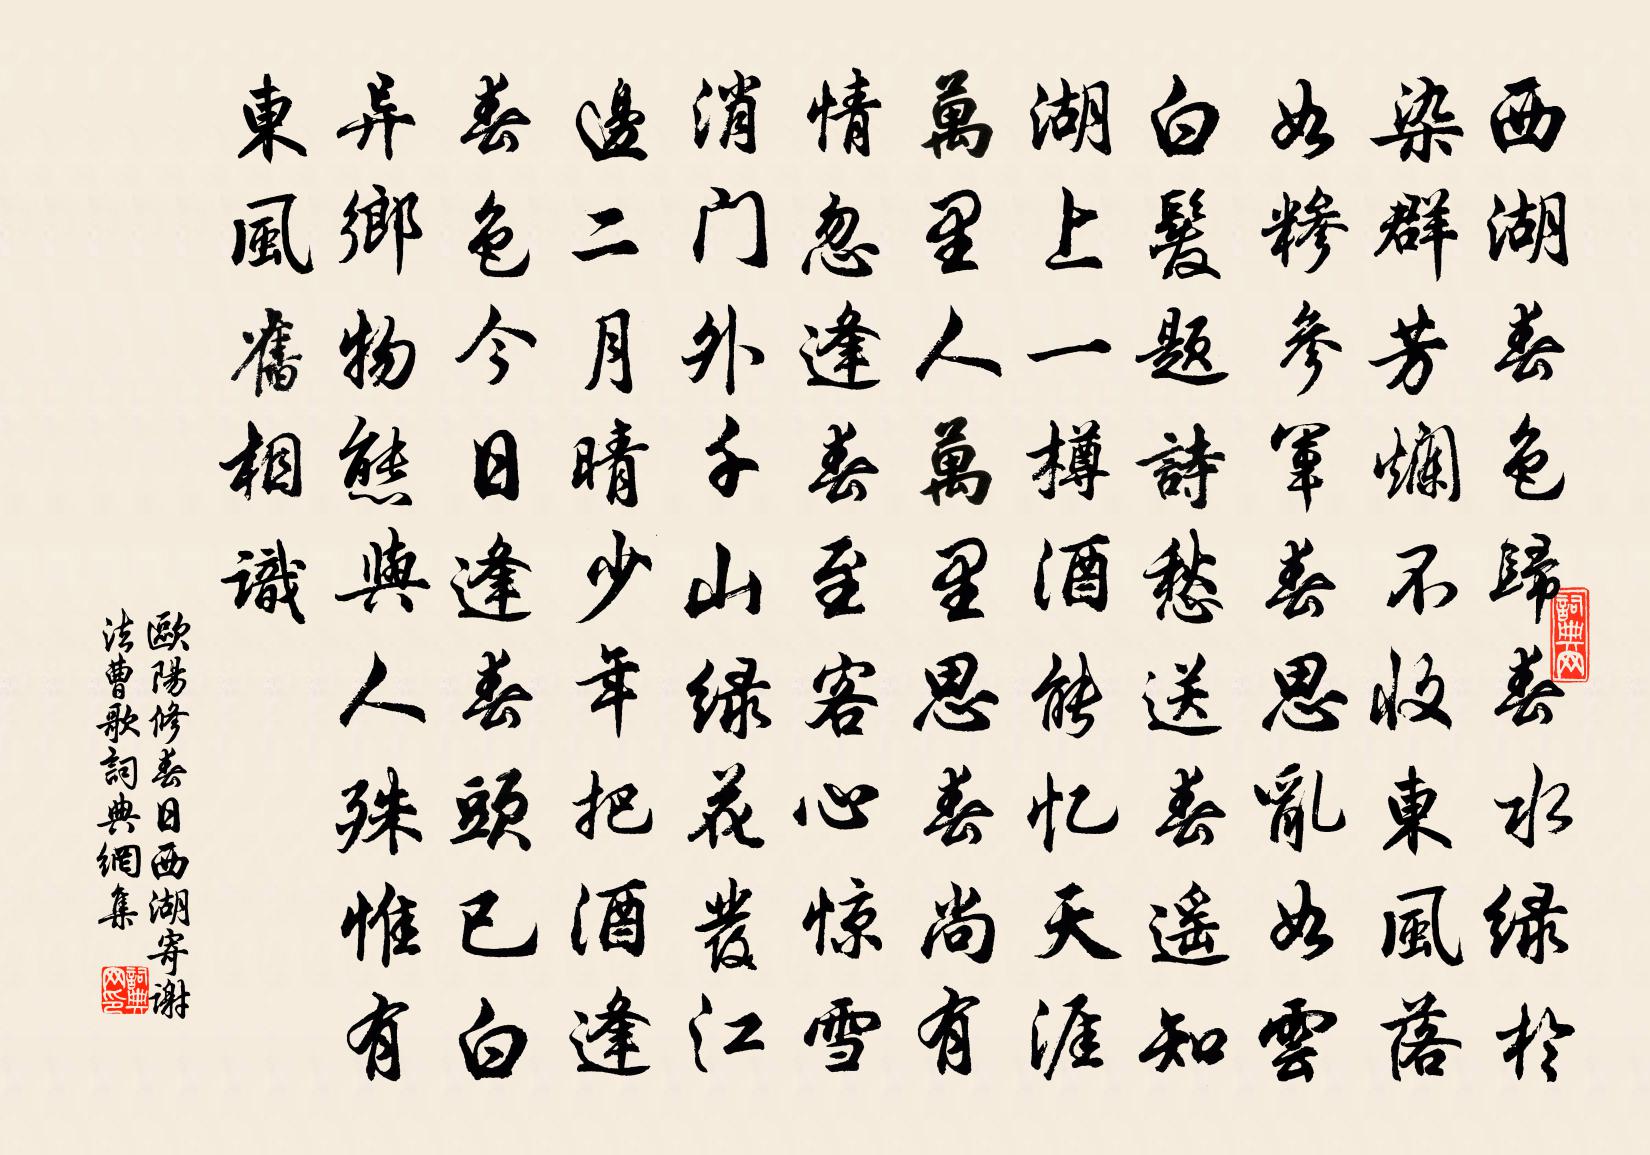 西湖春色歸春水緑於
染群芳爛不收東風落
如糝參軍春思亂如雲
白髮题詩愁送春遥知
湖上一樽酒能忆天涯
萬里人萬里思春尚有
情忽逢春至客心惊雪
消门外千山緑花發江
邊二月晴少年把酒逢
春色今日逢春頭已白
异鄉物態與人殊惟有
東風舊相識
歐陽修春日西湖寄谢
法曹歌詞典網集
詞典网
詞典网印